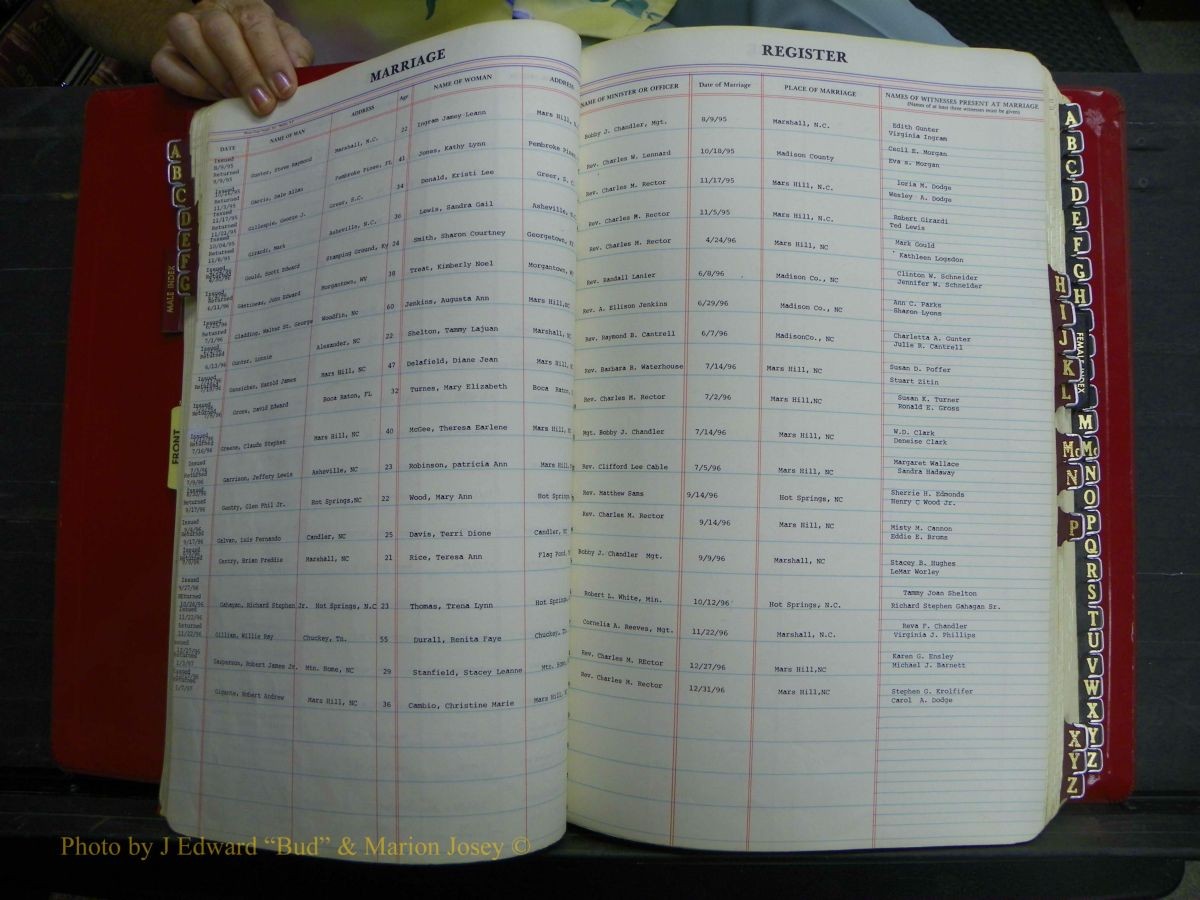 MARRIAGE
REGISTER
DATE NAME OF MAN ADDRESS Age NAME OF WOMAN ADDRESS
NAME OF MINISTER OR OFFICER Date of Marriage PLACE OF MARRIAGE NAMES OF WITNESSES PRESENT AT MARRIAGE
(Names of at least three witnesses must be given)
Issued
8/9/95
Returned
9/9/95
Gunter, Steve Raymond Marshall, N.C. 22 Ingram Jamey Leann Mars Hill,
Bobby J. Chandler, Mgt. 8/9/95 Marshall, N.C. Edith Gunter
Virginia Ingram
Issued
Returned
11/3/95
Garris, Dale Allan Pembroke Pines, FL 41 Jones, Kathy Lynn Pembroke Pines
Rev. Charles W. Lennard 10/18/95 Madison County Cecil E. Morgan
Eva s. Morgan
Issued
11/17/95
Returned
11/21/95
Gillespie, George J. Greer, S.C. 34 Donald, Kristi Lee Greer, S.
Rev. Charles M. Rector 11/17/95 Mars Hill, N.C. Ioria M. Dodge
Wesley A. Dodge
Issued
10/04/95
Returned
11/8/95
Girardi, Mark Asheville, N.C. 36 Lewis, Sandra Gail Asheville,
Rev. Charles M. Rector 11/5/95 Mars Hill, N.C. Robert Girardi
Ted Lewis
Gould, Scott Edward Stamping Ground, Ky 24 Smith, Sharon Courtney Georgetown,
Rev. Charles M. Rector 4/24/96 Mars Hill, NC Mark Gould
Kathleen Logsdon
6/11/96
Gastineau, John Edward Morgantown, WV 38 Treat, Kimberly Noel Morgantown,
Rev. Randall Lanier 6/8/96 Madison Co., NC Clinton W. Schneider
Jennifer W. Schneider
Returned
7/1/96
Gladding, Walter St. George Woodfin, NC 60 Jenkins, Augusta Ann Mars Hill,NC
Rev. A. Ellison Jenkins 6/29/96 Madison Co., NC Ann C. Parks
Sharon Lyons
Gunter, Lonnie Alexander, NC 22 Shelton, Tammy Lajuan Marshall,
Rev. Raymond B. Cantrell 6/7/96 MadisonCo., NC Charletta A. Gunter
Julie R. Cantrell
Gennichen, Harold James Mars Hill, NC 47 Delafield, Diane Jean Mars Hill,
Rev. Barbara R. Waterhouse 7/14/96 Mars Hill, NC Susan D. Poffer
Stuart Zitin
Gross, David Edward Boca Raton, FL 32 Turnes, Mary Elizabeth Boca Raton,
Rev. Charles M. Rector 7/2/96 Mars Hill,NC Susan K. Turner
Ronald E. Gross
Issued
Returned
7/16/96
Greene, Claude Stephen Mars Hill, NC 40 McGee, Theresa Earlene Mars Hill,
Mgt. Bobby J. Chandler 7/14/96 Mars Hill, NC W.D. Clark
Deneise Clark
Issued
7/3/96
Returned
7/9/96
Garrison, Jeffery Lewis Asheville, NC 23 Robinson, patricia Ann Mars Hill,
Rev. Clifford Lee Cable 7/5/96 Mars Hill, NC Margaret Wallace
Sandra Hadaway
Returned
9/17/96
Gentry, Glen Phil Jr. Hot Springs,NC 22 Wood, Mary Ann Hot Springs
Rev. Matthew Sams 9/14/96 Hot Springs, NC Sherrie H. Edmonds
Henry C Wood Jr.
Issued
9/4/96
Returned
9/17/96
Galvan, Luis Fernando Candler, NC 25 Davis, Terri Dione Candler,
Rev. Charles M. Rector 9/14/96 Mars Hill, NC Misty M. Cannon
Eddie E. Broms
Gentry, Brian Freddie Marshall, NC 21 Rice, Teresa Ann Flag Pond,
Bobby J. Chandler Mgt. 9/9/96 Marshall, NC Stacey B. Hughes
LeMar Worley
Issued
9/27/96
REturned
10/24/96
Gahagan, Richard Stephen Jr. Hot Springs, N.C 23 Thomas, Trena Lynn Hot Springs
Robert L. White, Min. 10/12/96 Hot Springs, N.C. Tammy Joan Shelton
Richard Stephen Gahagan Sr.
Issued
11/22/96
Returned
11/22/96
Gillian, Willie Ray Chuckey, Tn. 55 Durall, Renita Faye Chuckey, Tn
Cornelia A. Reeves, Mgt. 11/22/96 Marshall, N.C. Reva P. Chandler
Virginia J. Phillips
12/27/96
1/3/97
Gasperson, Robert James Jr. Mtn. Home, NC 29 Stanfield, Stacey Leanne Mtn. Home,
Rev. Charles M. REctor 12/27/96 Mars Hill,NC Karen G. Ensley
Michael J. Barnett
1/7/97
Gigante, Robert Andrew Mars Hill, NC 36 Cambio, Christine Marie Mars Hill,
Rev. Charles M. Rector 12/31/96 Mars Hill,NC Stephen G. Krolfifer
Carol A. Dodge
A
B
C
D
E
F
G
MALE INDEX
FRONT
A
B
C
D
E
F
G
H
FEMALE INDEX
M
Mc
N
O
P
Q
R
S
T
U
V
W
X
Y
Z
H
I
J
K
L
Mc
N
P
X
Y
Z
Photo by J Edward “Bud” & Marion Josey ©